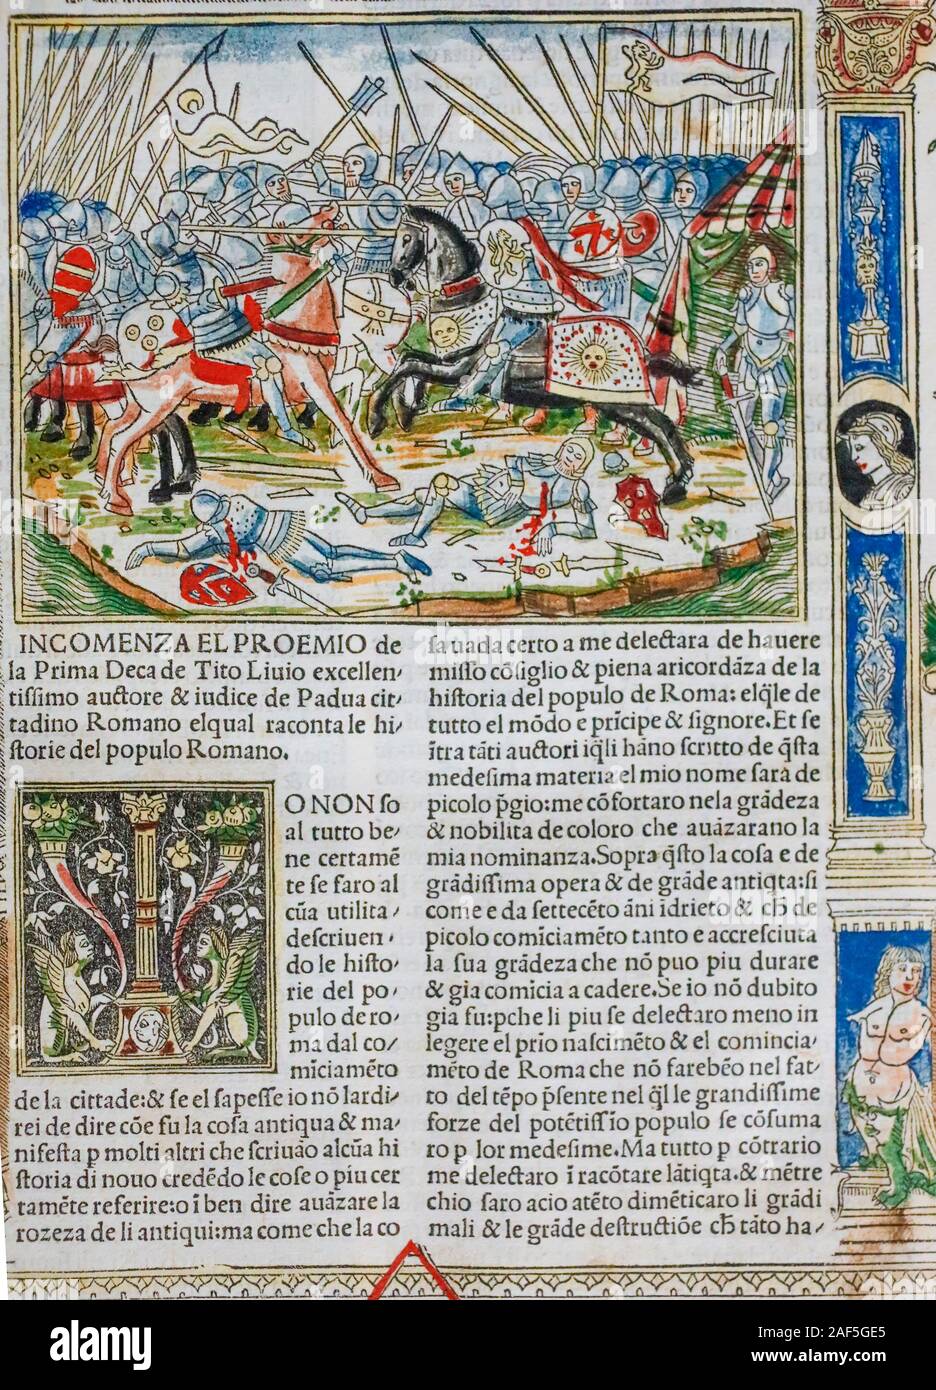 INCOMENZA EL PROEMIO de
la Prima Deca de Tito Liuio excellen-
tissimo auctore & iudice de Padua cit-
tadino Romano elqual raconta le hi-
storie del populo Romano.
IO NON so
al tutto be-
ne certamē
te se faro al
cūa utilita,
descriuen-
do le histo-
rie del po-
pulo de ro-
ma dal co-
mīciamēto
de la cittade:& se el sapesse io nō lardi-
rei de dire cōe fu la cosa antiqua & ma-
nifesta p molti altri che scriuāo alcūa hi
storia di nouo credēdo le cose o piu cer
tamēte referire:o ī ben dire auāzare la
rozeza de li antiqui:ma come che la co
sa uada certo a me delectara de hauere
misso cōsiglio & piena aricordāza de la
historia del populo de Roma: elq̄le de
tutto el mōdo e prīcipe & signore. Et se
ītra tāti auctori iq̄li hāno scritto de q̄sta
medesima materia el mio nome sarà de
picolo p̄gio:me cōfortaro nela grādeza
& nobilita de coloro che auāzarano la
mia nominanza. Sopra q̄sto la cosa e de
grādissima opera & de grāde antiq̄ta:si
come e da settecēto āni idrieto & ch̄ de
picolo comīciamēto tanto e accresciuta
la sua grādeza che nō puo piu durare
& gia comīcia a cadere. Se io nō dubito
gia fu:pche li piu se delectaro meno in
legere el prio nascimēto & el comincia-
mēto de Roma che nō farebēo nel fat-
to del tēpo p̄sente nel q̄l le grandissime
forze del potētissīo populo se cōsuma
ro p lor medesime. Ma tutto p cōtrario
me delectaro ī racōtare lātiq̄ta.& mētre
chio saro acio atēto dimēticaro li grādi
mali & le grāde destructiōe ch̄ tāto ha-
alamy
Image ID: 2AF5GE5
www.alamy.com